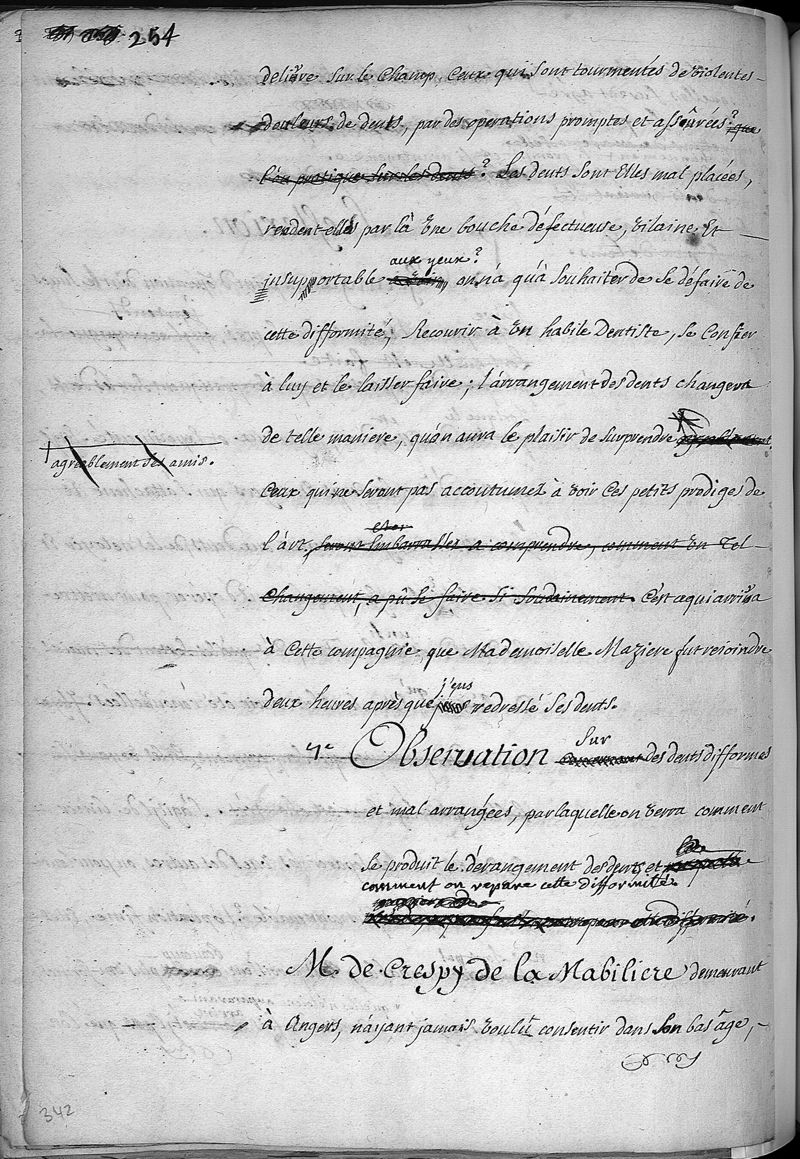 254
delivre sur le champ, ceux qui sont tourmentés de violentes
douleurs de dents, par des operations promptes et assûrées? que
l'on pratique sur les dents? Les dents sont Elles mal placées,
rendent-elles par là une bouche défectueuse, vilaine Et
aux yeux?
insupportable on n'a qu'à souhaiter de se défaire de
cette difformité, Recourir à un habile Dentiste, se Confier
à luy et le laisser faire; l'arrangement des dents changera
de telle maniere, qu'on aura le plaisir de surprendre
agréablement ses amis.
Ceux qui ne seront pas accoutumez à voir Ces petits prodiges de
l'art, seront Embarrassés a comprendre, comment un Tel
Changement, a pû se faire si soudainement. C'est ce qui arriva
à Cette compagnie que Mademoiselle Maziere fut rejoindre
j'eus
deux heures après que redressé ses dents.
sur
7e Observation concernant des dents difformes
et mal arrangées, par laquelle on verra comment
se produit le dérangement des dents et
comment on repare cette difformité.
M. de Crespy de la Mabiliere demeurant
à Angers, n'ayant jamais voulû consentir dans son bas âge,
342